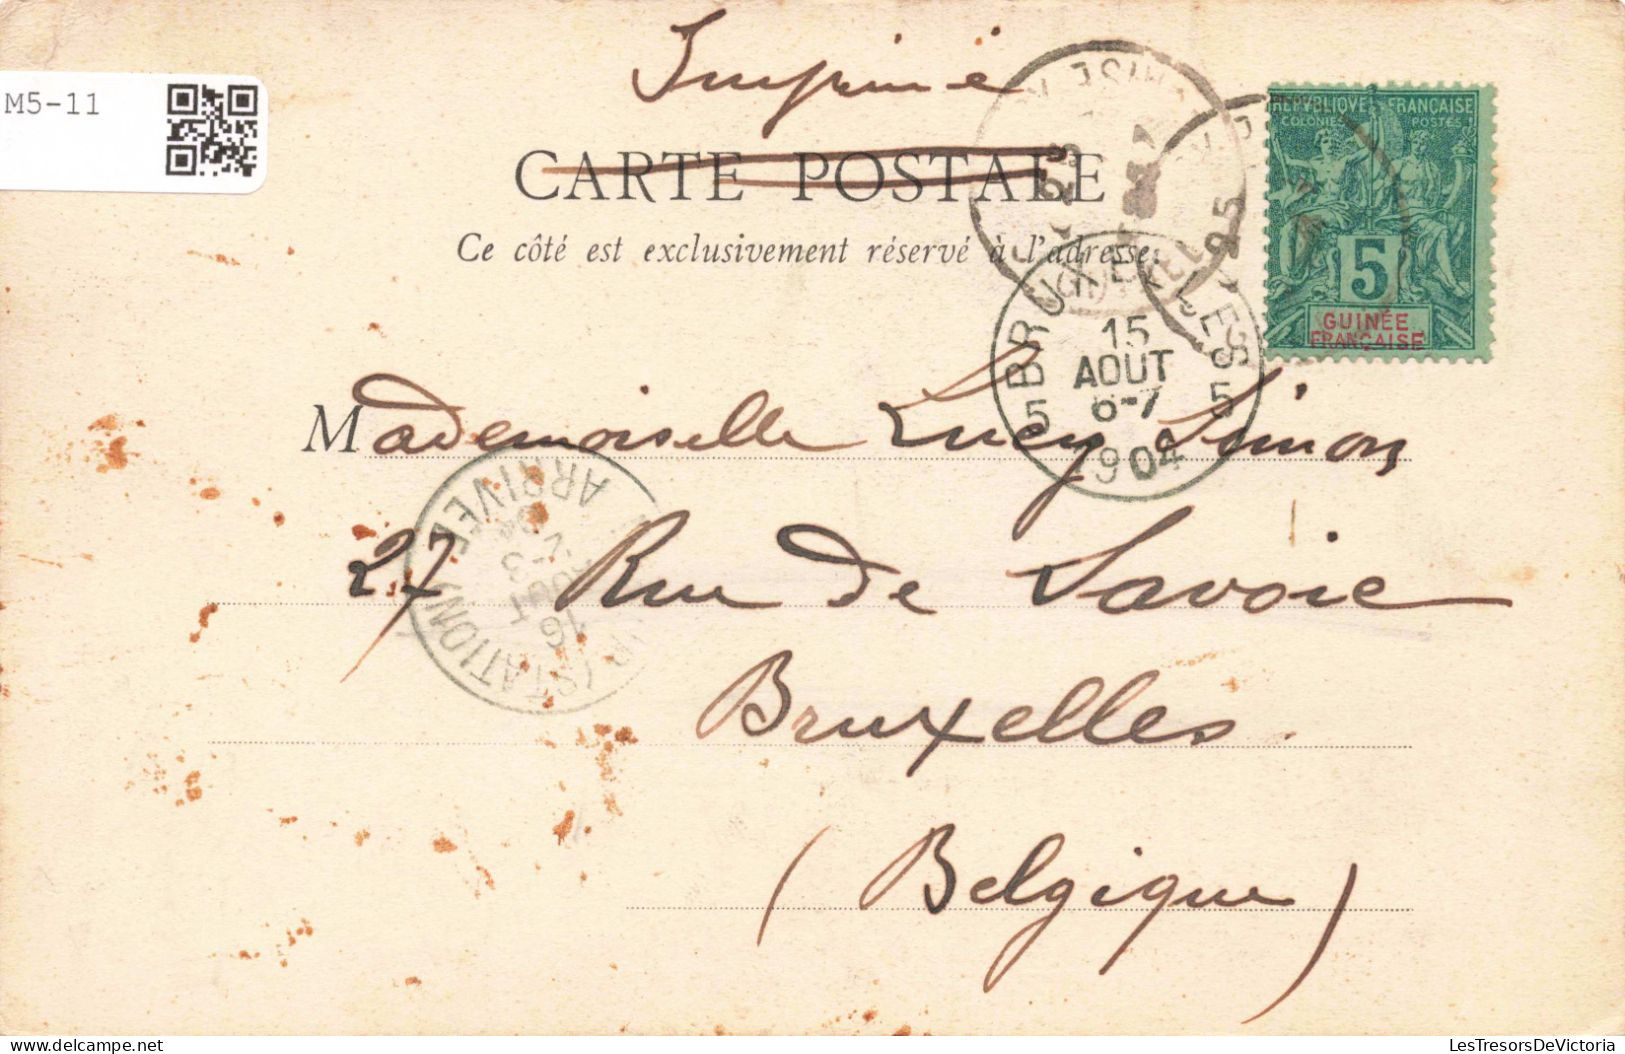 M5-11
Imprimé
CARTE POSTALE
Ce côté est exclusivement réservé à l'adresse.
RÉPUBLIQUE FRANÇAISE
COLONIES POSTES
5
GUINÉE
FRANÇAISE
25
BRUXELLES
15
AOUT
6-7
1904
5 5
Mademoiselle Lucy Simon
27 Rue de Savoie
Bruxelles.
(Belgique)
(STATION)
ARRIVEE
16
AOUT
delcampe.net
LesTresorsDeVictoria